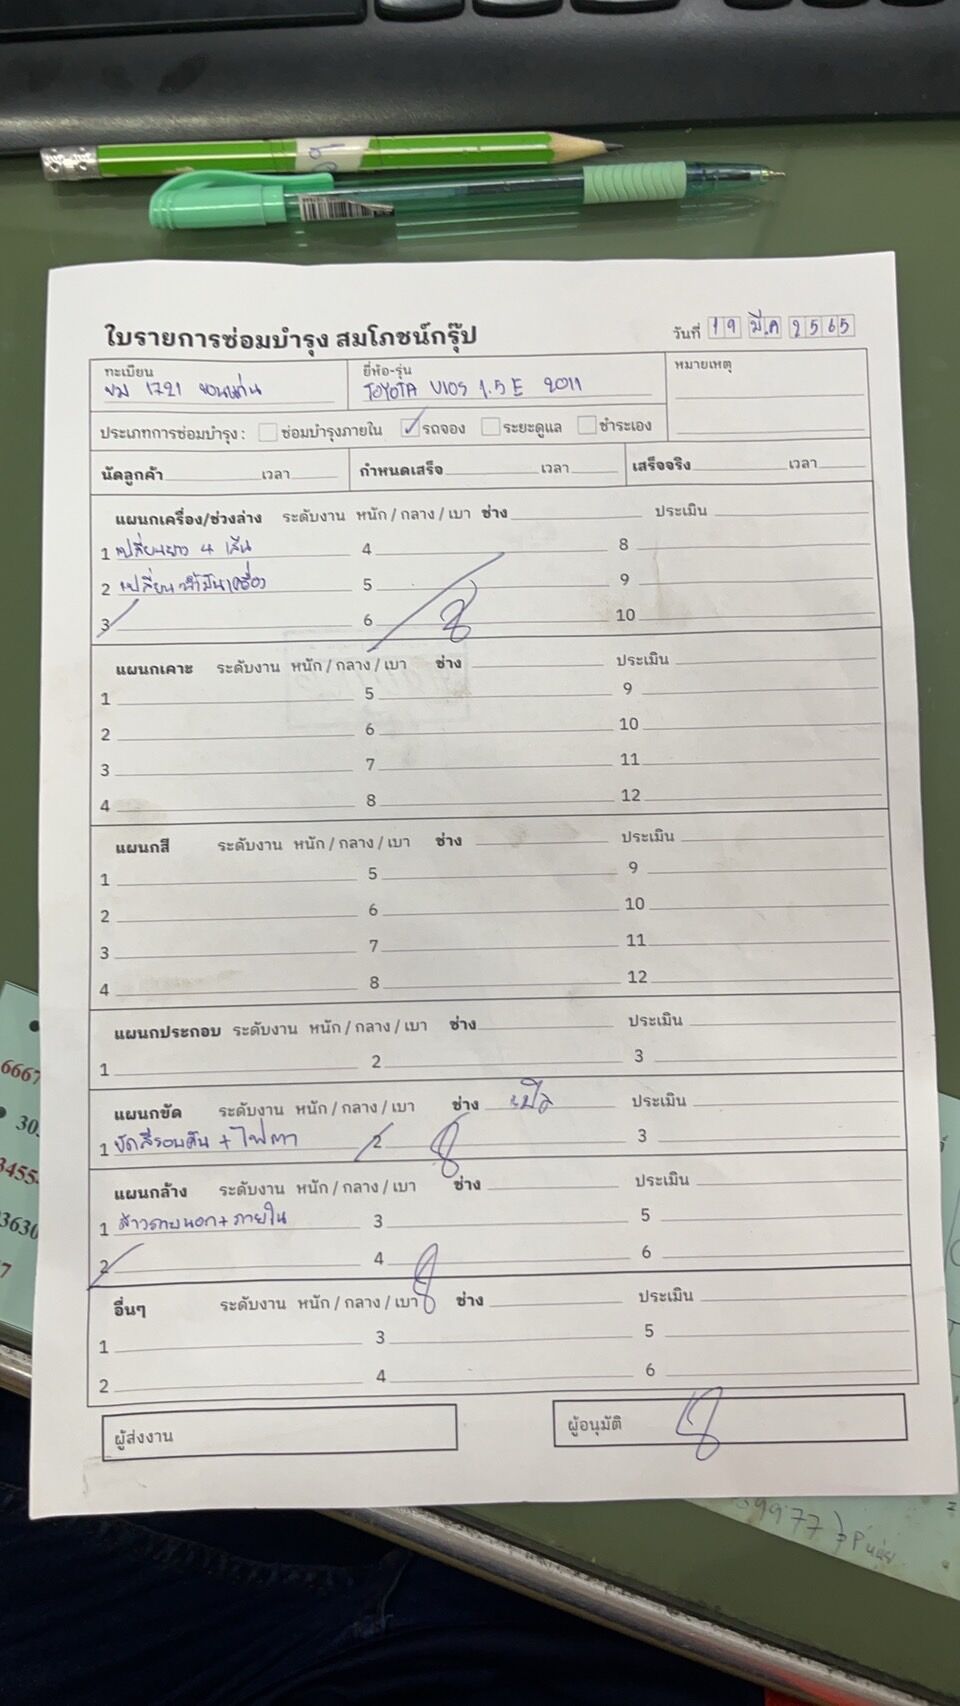 ใบรายการซ่อมบำรุง สมโภชน์กรุ๊ป
วันที่ 19 มี.ค 2565
ทะเบียน
ยี่ห้อ-รุ่น
หมายเหตุ
ขม 1721 ขอนแก่น
TOYOTA VIOS 1.5 E 2011
ประเภทการซ่อมบำรุง : ซ่อมบำรุงภายใน รถจอง ระยะดูแล ชำระเอง
นัดลูกค้า เวลา กำหนดเสร็จ เวลา เสร็จจริง เวลา
แผนกเครื่อง/ช่วงล่าง ระดับงาน หนัก / กลาง / เบา ช่าง ประเมิน
1 เปลี่ยนยาง 4 เส้น 4 8
2 เปลี่ยนน้ำมันเครื่อง 5 9
3 6 10
แผนกเคาะ ระดับงาน หนัก / กลาง / เบา ช่าง ประเมิน
1 5 9
2 6 10
3 7 11
4 8 12
แผนกสี ระดับงาน หนัก / กลาง / เบา ช่าง ประเมิน
1 5 9
2 6 10
3 7 11
4 8 12
แผนกประกอบ ระดับงาน หนัก / กลาง / เบา ช่าง ประเมิน
1 2 3
แผนกขัด ระดับงาน หนัก / กลาง / เบา ช่าง ประเมิน
1 ขัดสีรอบคัน + ไฟตา 2 3
แผนกล้าง ระดับงาน หนัก / กลาง / เบา ช่าง ประเมิน
1 ล้างภายนอก + ภายใน 3 5
2 4 6
อื่นๆ ระดับงาน หนัก / กลาง / เบา ช่าง ประเมิน
1 3 5
2 4 6
ผู้ส่งงาน
ผู้อนุมัติ
6667
30
3455
3630
7
39977